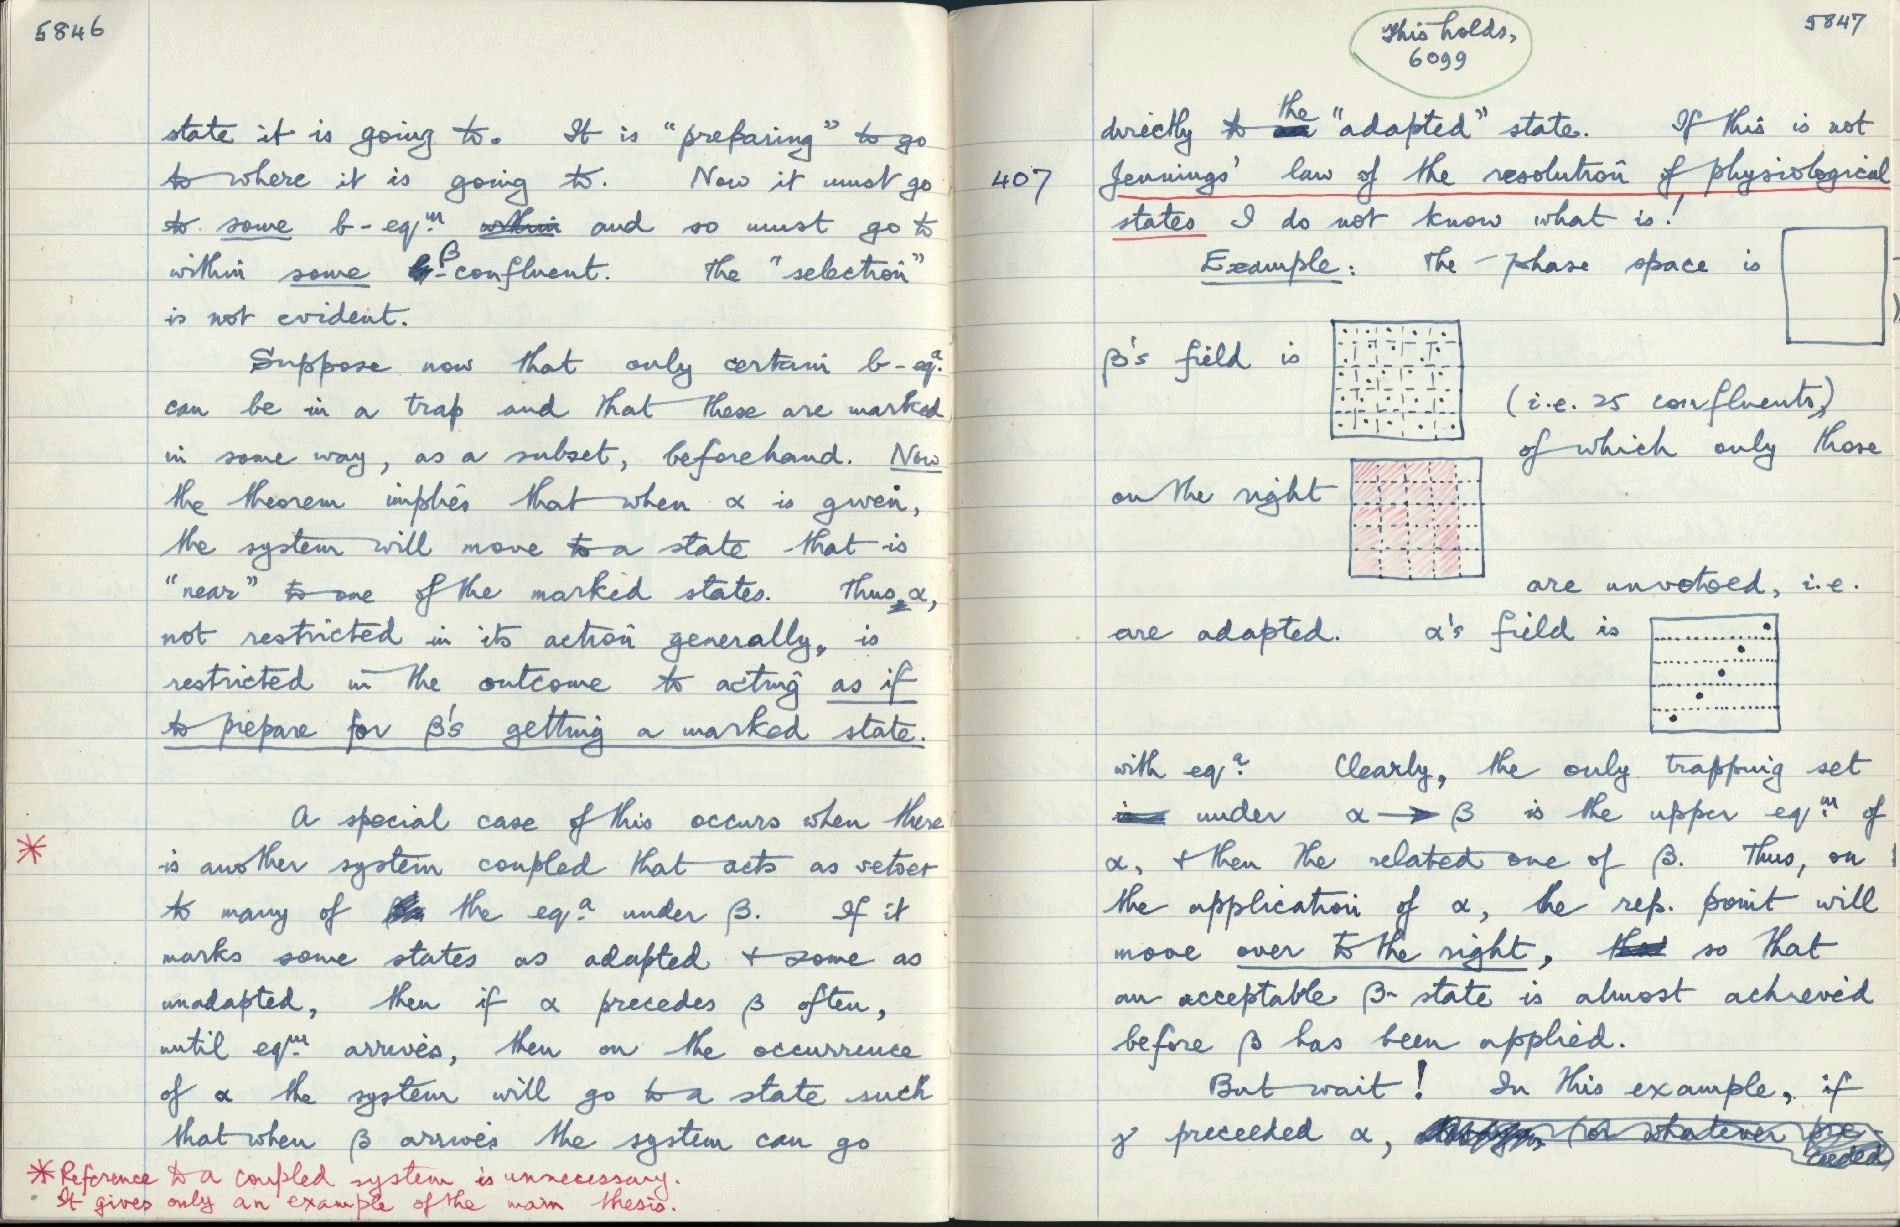 5846
state it is going to. It is "preparing" to go
to where it is going to. Now it must go
to some b-eqm within and so must go to
within some β-confluent. The "selection"
is not evident.
Suppose now that only certain b-eqa
can be in a trap and that these are marked
in some way, as a subset, beforehand. Now
the theorem implies that when α is given,
the system will move to a state that is
"near" to one of the marked states. Thus α,
not restricted in its action generally, is
restricted in the outcome to acting as if
to prepare for β's getting a marked state.
A special case of this occurs when there
* is another system coupled that acts as vetoer
to many of the eqa under β. If it
marks some states as adapted + some as
unadapted, then if α precedes β often,
until eqm arrives, then on the occurrence
of α the system will go to a state such
that when β arrives the system can go
* Reference to a coupled system is unnecessary.
It gives only an example of the main thesis.
This holds,
6099
5847
directly to the "adapted" state. If this is not
407 Jennings' law of the resolution of physiological
states I do not know what is!
Example: The phase space is
β's field is
(i.e. 25 confluents,)
of which only those
on the right
are unvetoed, i.e.
are adapted. α's field is
with eqa. Clearly, the only trapping set
is under α → β is the upper eqm of
α, + then the related one of β. Thus, on
the application of α, the rep. point will
move over to the right, that so that
an acceptable β-state is almost achieved
before β has been applied.
But wait! In this example, if
γ preceeded α, (or whatever pre-
ceeded